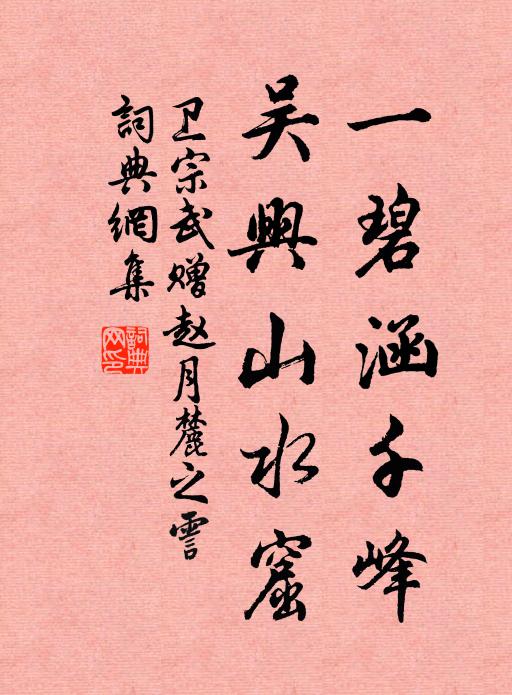 一碧涵千峰
吴興山水窟
卫宗武赠赵月麓之霅
詞典網集
詞典网印